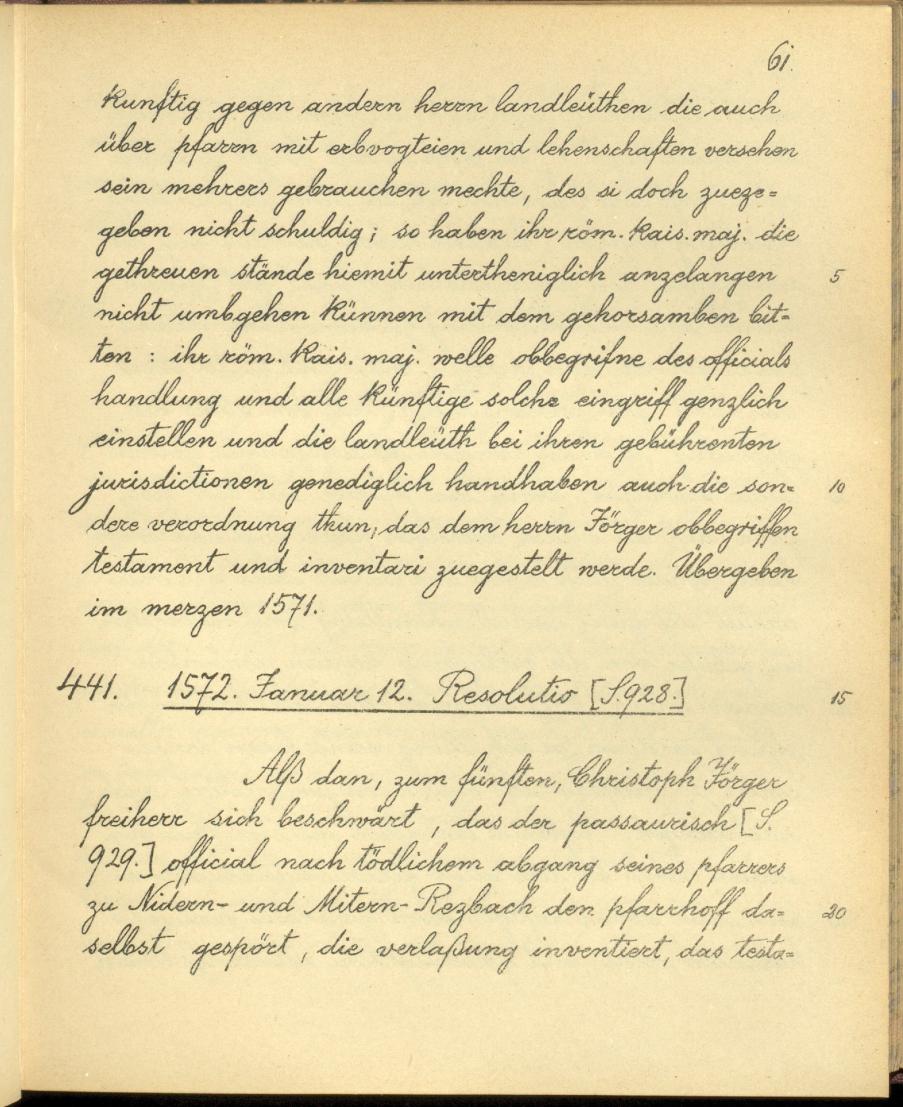 61.
kunftig gegen andern herrn landleüthen die auch
über pfarrn mit erbvogteien und lehenschaften versehen
sein mehrers gebrauchen mechte, des si doch zueze=
geben nicht schuldig; so haben ihr röm. kais. maj. die
gethreuen stände hiemit untertheniglich anzelangen 5
nicht umbgehen künnen mit dem gehorsamben bit=
ten : ihr röm. kais. maj. welle obbegrifne des officials
handlung und alle künftige solche eingriff genzlich
einstellen und die landleüth bei ihren gebührenten
jurisdictionen genediglich handhaben auch die son= 10
dere verordnung thun, das dem herrn Jörger obbegriffen
testament und inventari zuegestelt werde. Übergeben
im merzen 1571.
441. 1572. Januar 12. Resolutio [S.928.] 15
Alß dan, zum fünften, Christoph Jörger
freiherr sich beschwärt, das der passaurisch [S.
929.] official nach tödlichem abgang seines pfarrers
zu Nidern- und Mitern-Rezbach den pfarrhoff da= 20
selbst gespört, die verlaßung inventiert, das testa=